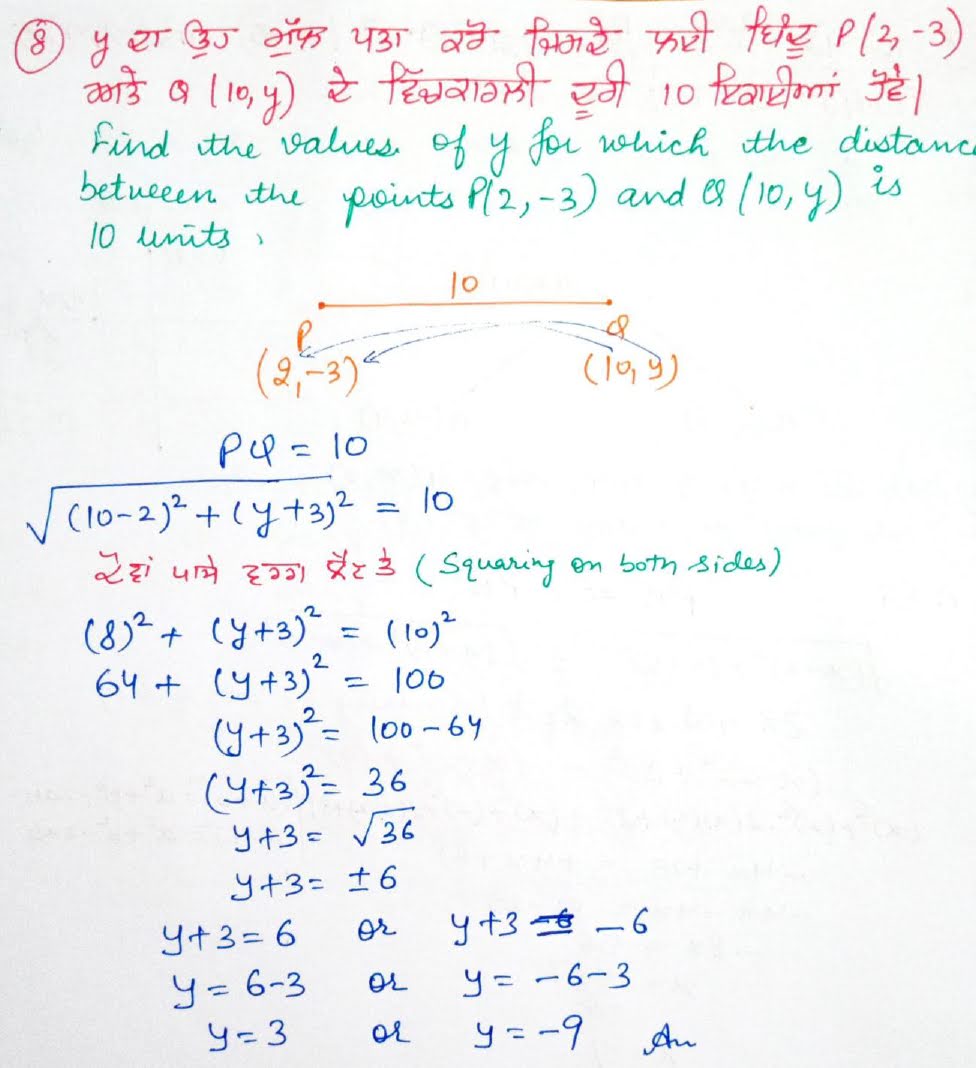 ⑧ y ਦਾ ਉਹ ਮੁੱਲ ਪਤਾ ਕਰੋ ਜਿਸਦੇ ਲਈ ਬਿੰਦੂ P(2, -3)
ਅਤੇ Q (10, y) ਦੇ ਵਿੱਚਕਾਰਲੀ ਦੂਰੀ 10 ਇਕਾਈਆਂ ਹੋਵੇ।
Find the values of y for which the distanc
between the points P(2, -3) and Q (10, y) is
10 units.
10
P Q
(2, -3) (10, y)
PQ = 10
√(10-2)² + (y+3)² = 10
ਦੋਵਾਂ ਪਾਸੇ ਵਰਗ ਲੈਣ ਤੇ (Squaring on both sides)
(8)² + (y+3)² = (10)²
64 + (y+3)² = 100
(y+3)² = 100-64
(y+3)² = 36
y+3 = √36
y+3 = ±6
y+3 = 6 or y+3 = -6
y = 6-3 or y = -6-3
y = 3 or y = -9 An